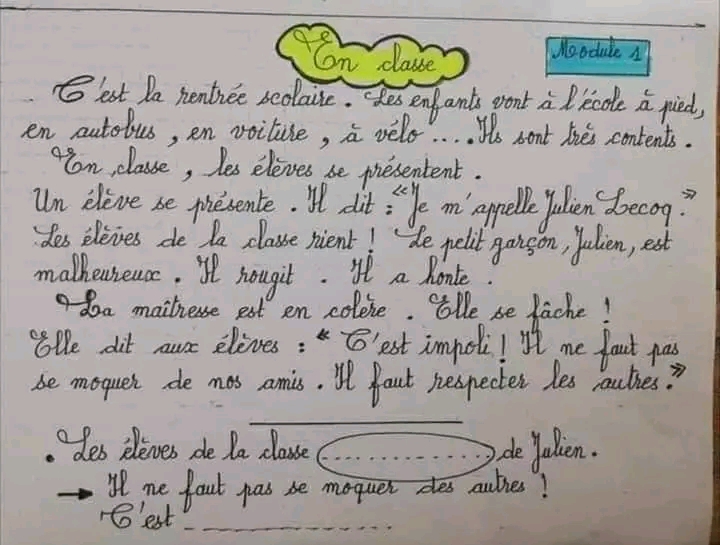 En classe
Module 1
C'est la rentrée scolaire. Les enfants vont à l'école à pied,
en autobus, en voiture, à vélo .... Ils sont très contents.
En classe, les élèves se présentent.
Un élève se présente. Il dit : "Je m'appelle Julien Lecoq."
Les élèves de la classe rient ! Le petit garçon, Julien, est
malheureux. Il rougit. Il a honte.
La maîtresse est en colère. Elle se fâche !
Elle dit aux élèves : "C'est impoli ! Il ne faut pas
se moquer de nos amis. Il faut respecter les autres."
. Les élèves de la classe (..................) de Julien.
→ Il ne faut pas se moquer des autres !
C'est _ _ _ _ _ _ _ _ _ _ _ _